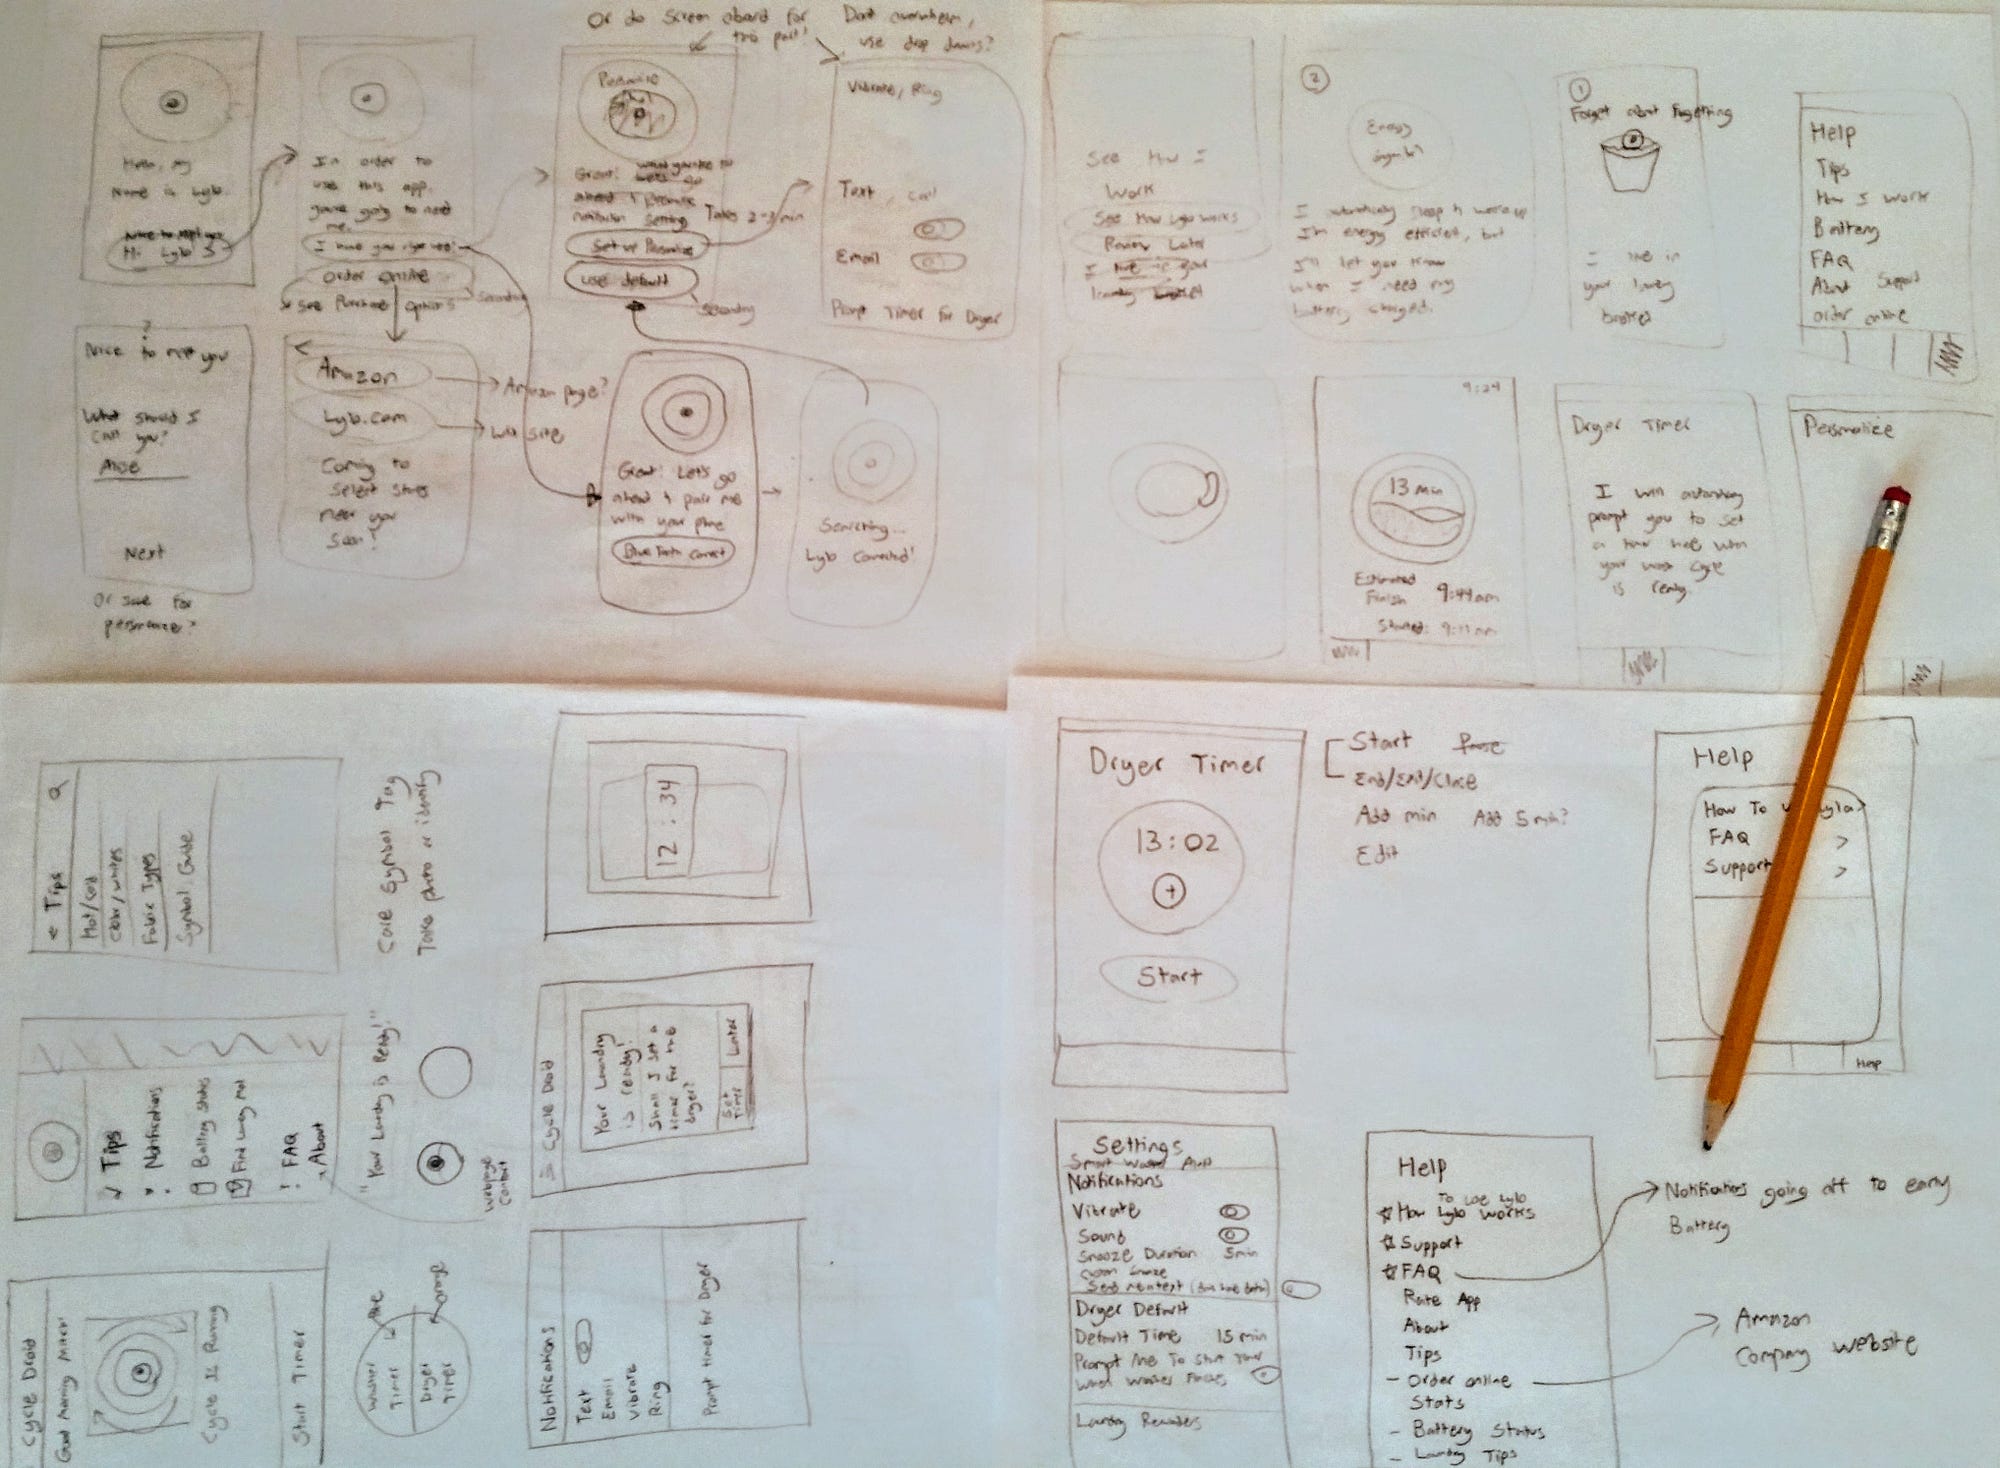 Or do screen aboard for
this part?
Don't overwhelm,
use drop downs?
Hello, my
Name is Lylo.
Hi Lylo :)
In order to
use this app,
you're going to need
me.
I have you right here!
Order online
See Purchase options
Secondary
Personalize
Great!
Set up Personalize
use default
Secondary
Takes 2-3 min
Vibrate, Ring
Text, call
Email
Prompt Timer for Dryer
?
Nice to meet you
What should I
call you?
Next
Or save for
personalize?
<
Amazon
Amazon page?
Lylo.com
Web site
Coming to
select stores
near you
soon!
Great! Let's go
ahead & pair me
with your phone
Blue Tooth connect
Searching...
Lylo Connected!
See How I
Work
See How Lylo works
Review Later
2
Energy
I automatically sleep & wake up
I'm energy efficient, but
I'll let you know
when I need my
battery charged.
1
Forget about forgetting
I live in
your laundry
basket
Help
Tips
How I work
Battery
FAQ
About Support
order online
9:24
13 min
Estimated
Finish 9:44am
Started: 9:11am
Dryer Timer
I will automatically
prompt you to set
a timer here when
your wash cycle
is ready.
Personalize
← Tips
Hot/Cold
Color/whites
Fabric Types
Symbol Guide
Care Symbol Tag
Take photo or identify
12:34
Tips
Notifications
Battery Status
FAQ
About
"Your Laundry is Ready!"
webpage
content
Cycle Droid
Your Laundry
is ready!
Shall I set a
timer for the
dryer?
Set
Timer
Later
Cycle Droid
Good Morning Mitch!
Cycle Is Running
Start Timer
Washer
Timer
Dryer
Timer
Orange
Notifications
Text
Email
Vibrate
Ring
Prompt timer for Dryer
Dryer Timer
13:02
+
Start
Start Pause
End/Exit/Close
Add min Add 5 min?
Edit
Help
How To
FAQ >
Support >
Help
Settings
Notifications
Vibrate
Sound
Snooze Duration 5min
Dryer Default
Default Time 15 min
Prompt Me To Start Timer
When Washer Finishes
Laundry Reminders
Help
To use Lylo
How Lylo works
Support
FAQ
Rate App
About
Tips
- Order online
Stats
- Battery Status
- Laundry Tips
Notifications going off to early
Battery
Amazon
Company website